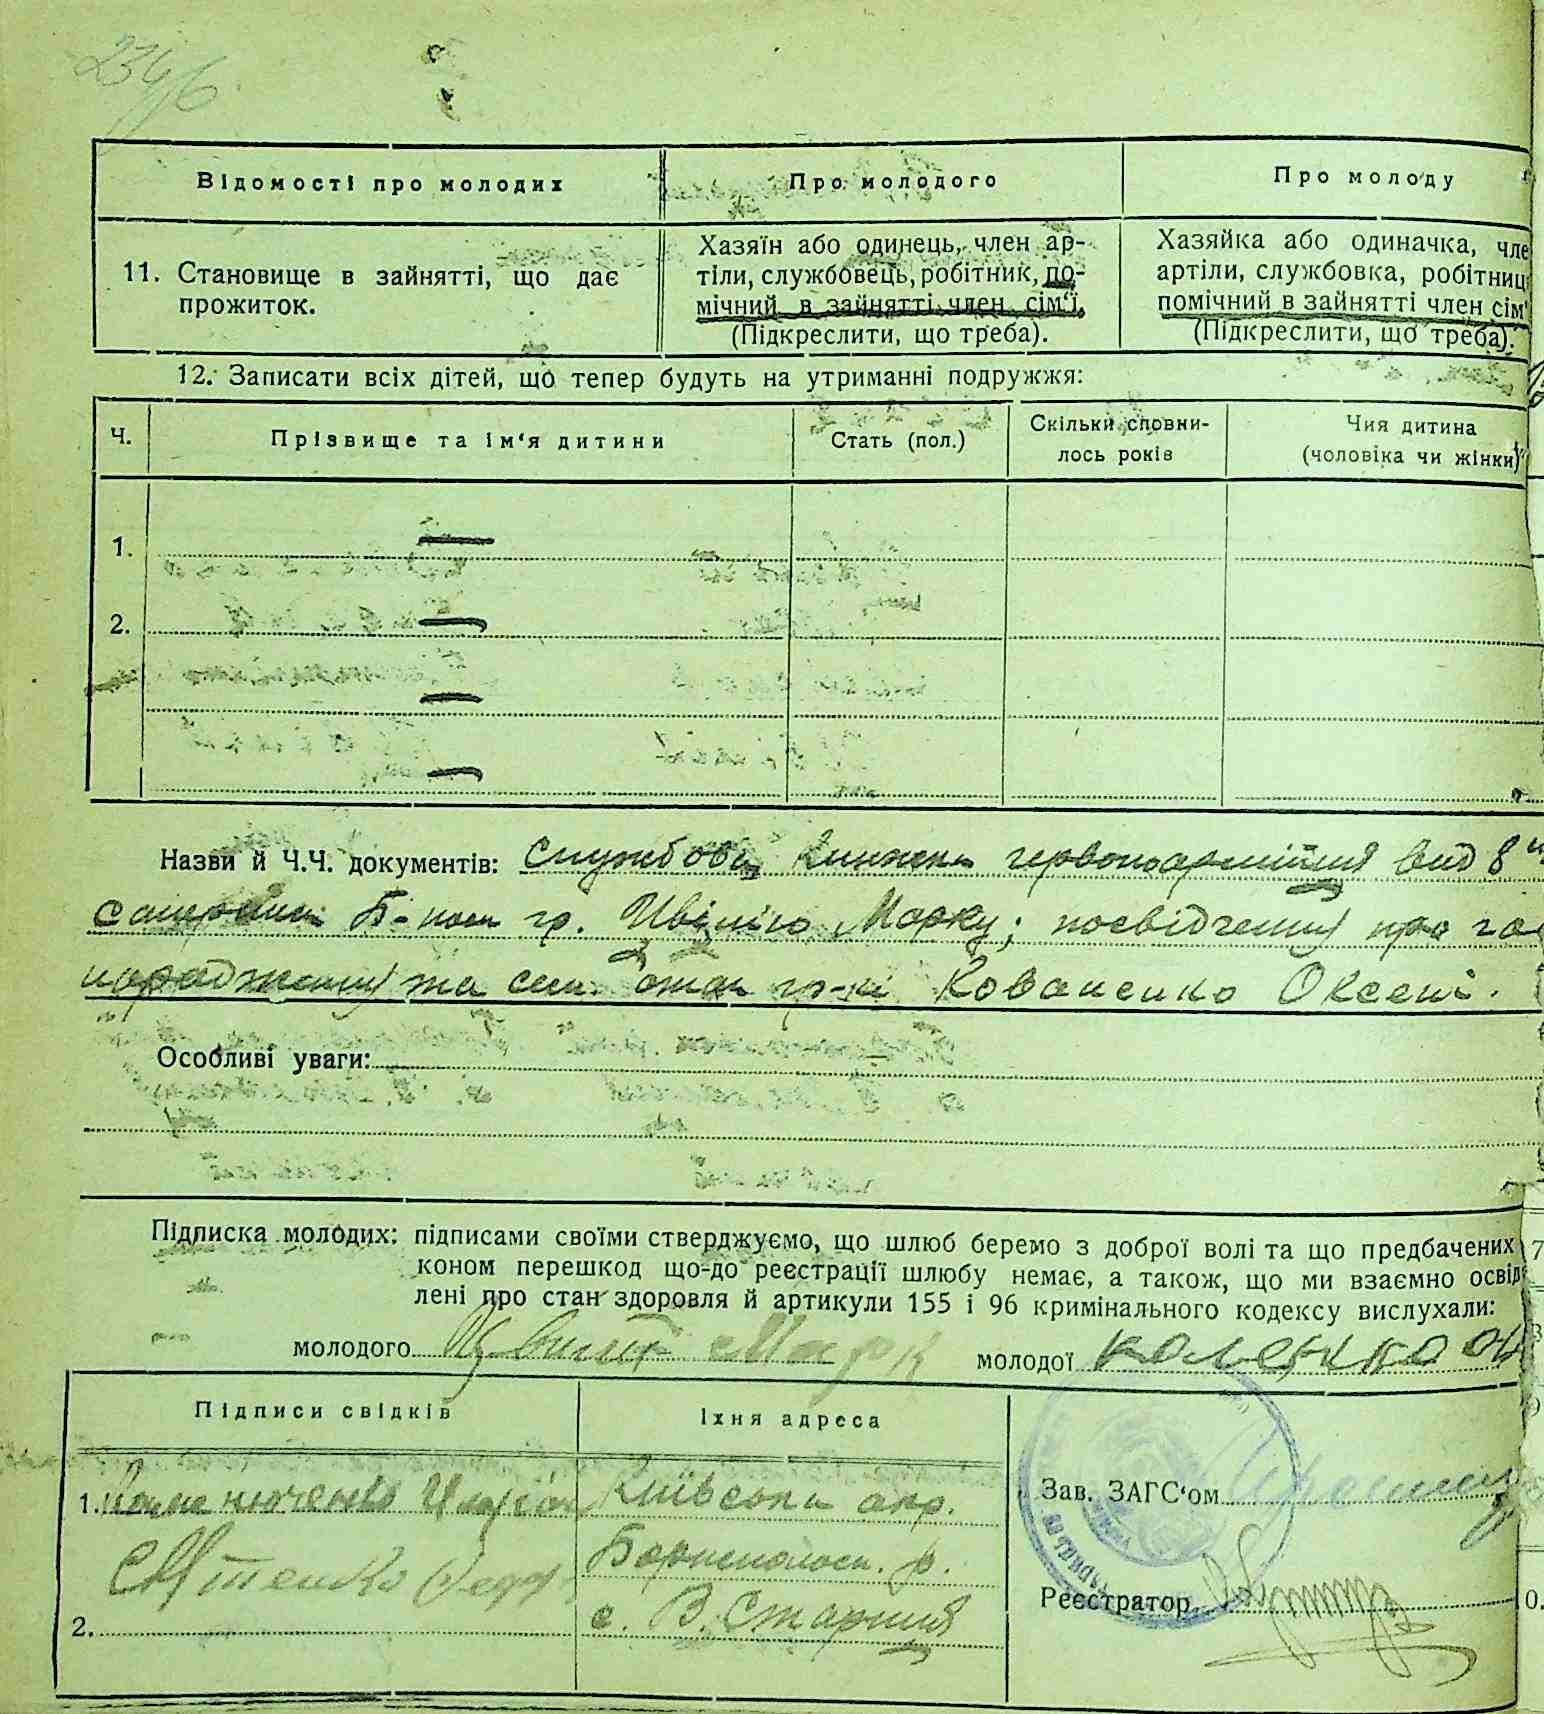 234/б
Відомості про молодих
Про молодого
Про молоду
11. Становище в зайнятті, що дає прожиток.
Хазяїн або одинець, член ар-
тіли, службовець, робітник, по-
мічний в зайнятті член сім'ї.
(Підкреслити, що треба).
Хазяйка або одиначка, чле
артіли, службовка, робітниц
помічний в зайнятті член сім'
(Підкреслити, що треба).
12. Записати всіх дітей, що тепер будуть на утриманні подружжя:
Ч.
Прізвище та ім'я дитини
Стать (пол.)
Скільки сповни-
лось років
Чия дитина
(чоловіка чи жінки)
1.
2.
Назви й Ч.Ч. документів: Службова книжка червоноармійця вид 8
Б-ном гр. Марку; посвідчення про
народження та сем. стан гр-ki Коваленко Оксені.
Особливі уваги:
Підписка молодих: підписами своїми стверджуємо, що шлюб беремо з доброї волі та що предбачених
коном перешкод що-до реєстрації шлюбу немає, а також, що ми взаємно освід
лені про стан здоровля й артикули 155 і 96 кримінального кодексу вислухали:
молодого Марк молодої
Підписи свідків
Їхня адреса
1. Київська окр.
Бориспольск. р.
с. В. Стариця
2.
Зав. ЗАГС'ом
Реєстратор